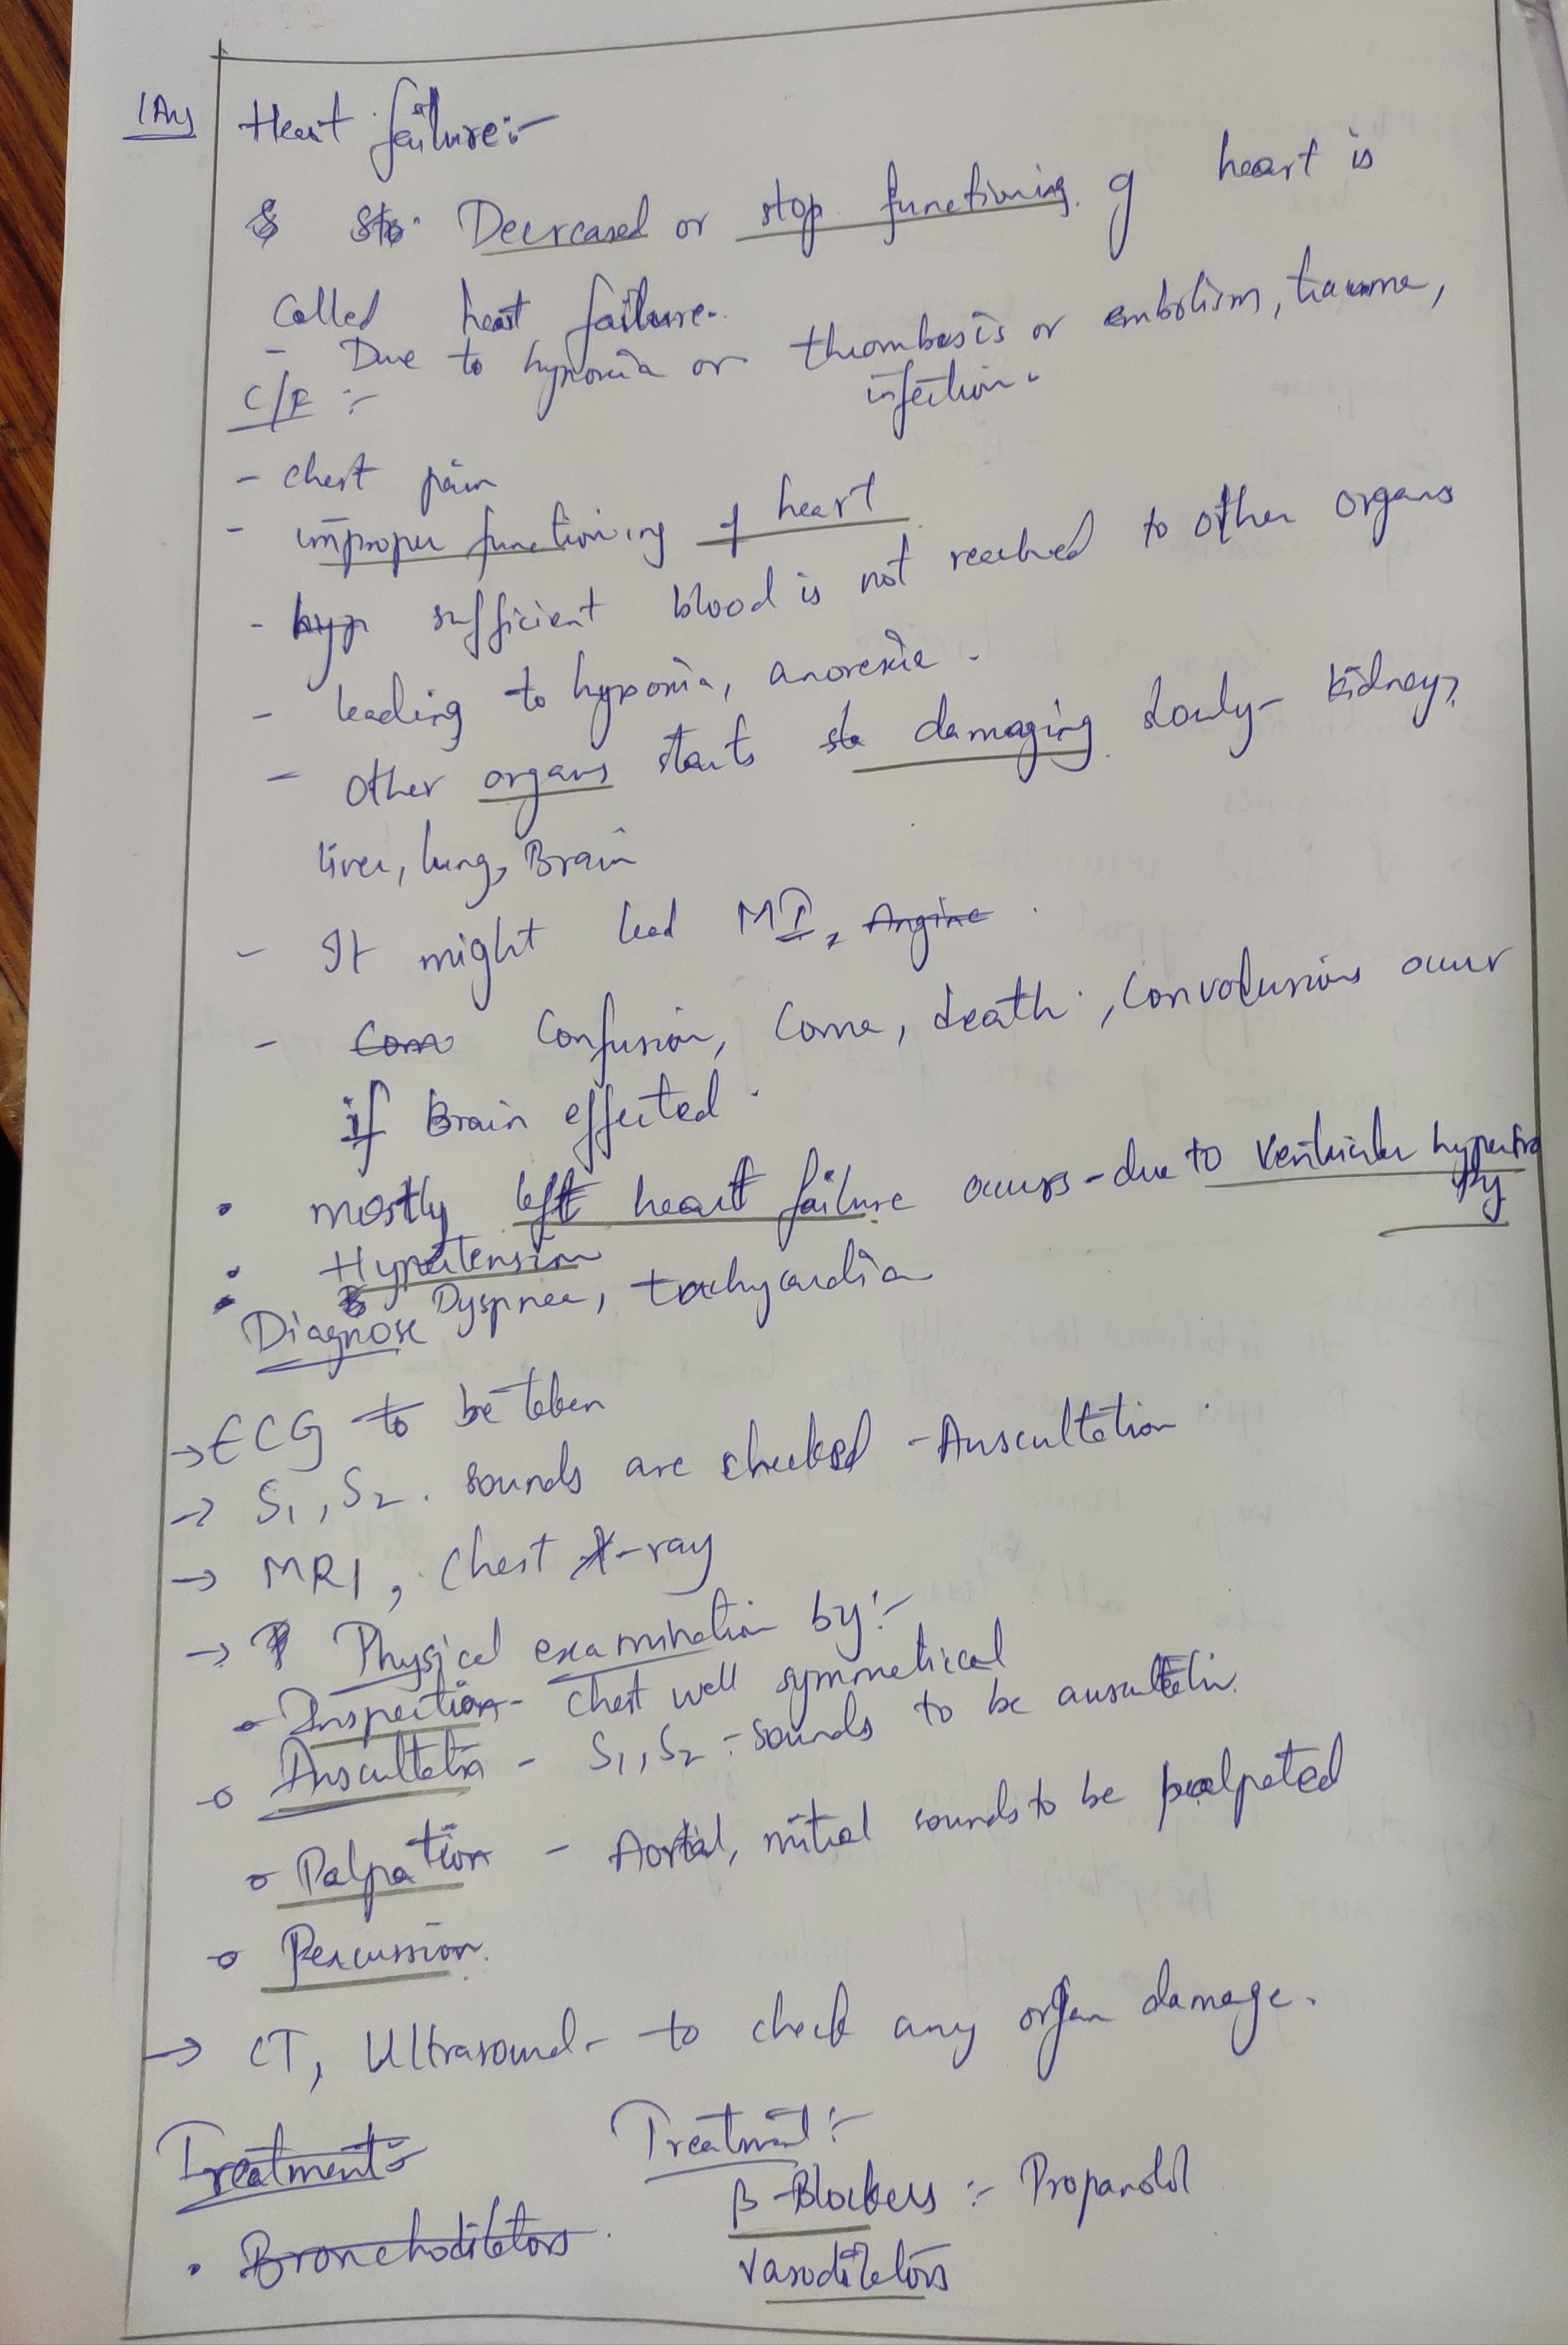 1Ans
Heart failure:-
Decreased or stop functioning of heart is
called heart failure.
- Due to hypoxia or thrombosis or embolism, trauma,
infection.
C/F :-
- chest pain
- improper functioning of heart
- hyp sufficient blood is not reached to other organs
- leading to hypoxia, anorexia.
- other organs starts damaging slowly - kidney,
liver, lung, Brain
- It might lead MI, Angina.
- Com Confusion, Coma, death, Convolusions occur
if Brain effected.
• mostly left heart failure occurs - due to Ventricular hypertro
phy
• Hypertension
• Dyspnea, tachycardia
Diagnose
→ ECG to be taken
→ S1, S2. sounds are checked - Auscultation.
→ MRI, Chest X-ray
→ Physical examination by:-
o Inspection - Chest well symmetrical
o Auscultatn - S1, S2 - sounds to be auscultati.
o Palpation - Aortal, mitral sounds to be palpated
o Percussion.
→ CT, Ultrasound - to check any organ damage.
Treatment:-
• Bronchodilators.
Treatment:-
β-Blockers :- Propanolol
Vasodilators